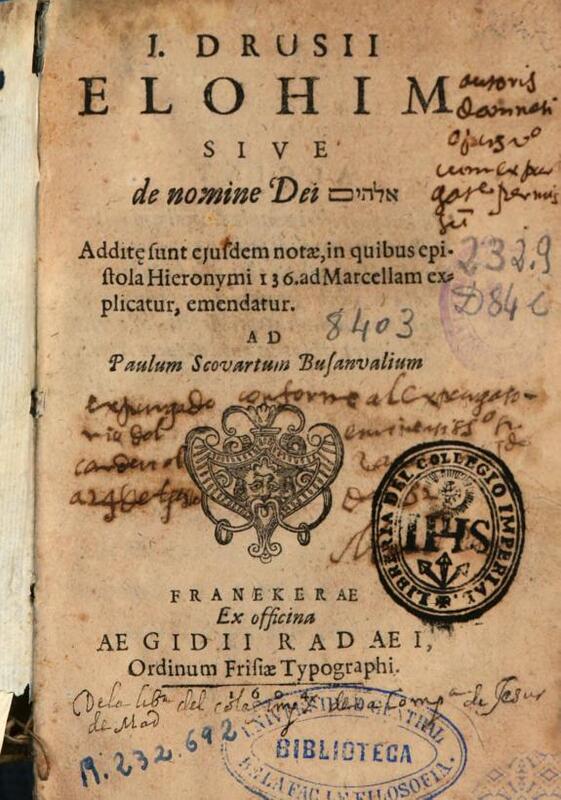 I. DRUSII
ELOHIM
SIVE
de nomine Dei אלהים
Additę sunt ejusdem notæ, in quibus epi-
stola Hieronymi 136. ad Marcellam ex-
plicatur, emendatur.
AD
Paulum Scovartum Busanvalium
autoris
damnati
cum expur
permis
232.9
D84e
8403
expurgado conforme al expurgato-
rio del
cardenal
LIBRERIA DEL COLLEGIO IMPERIAL
IHS
FRANEKERAE
Ex officina
AEGIDII RADAEI,
Ordinum Frisiæ Typographi.
De la libª del colº Impˡ de la Compª de Jesus
de Mad
R.232.692
UNIVERSIDAD CENTRAL
BIBLIOTECA
DE LA FAC. DE FILOSOFIA.